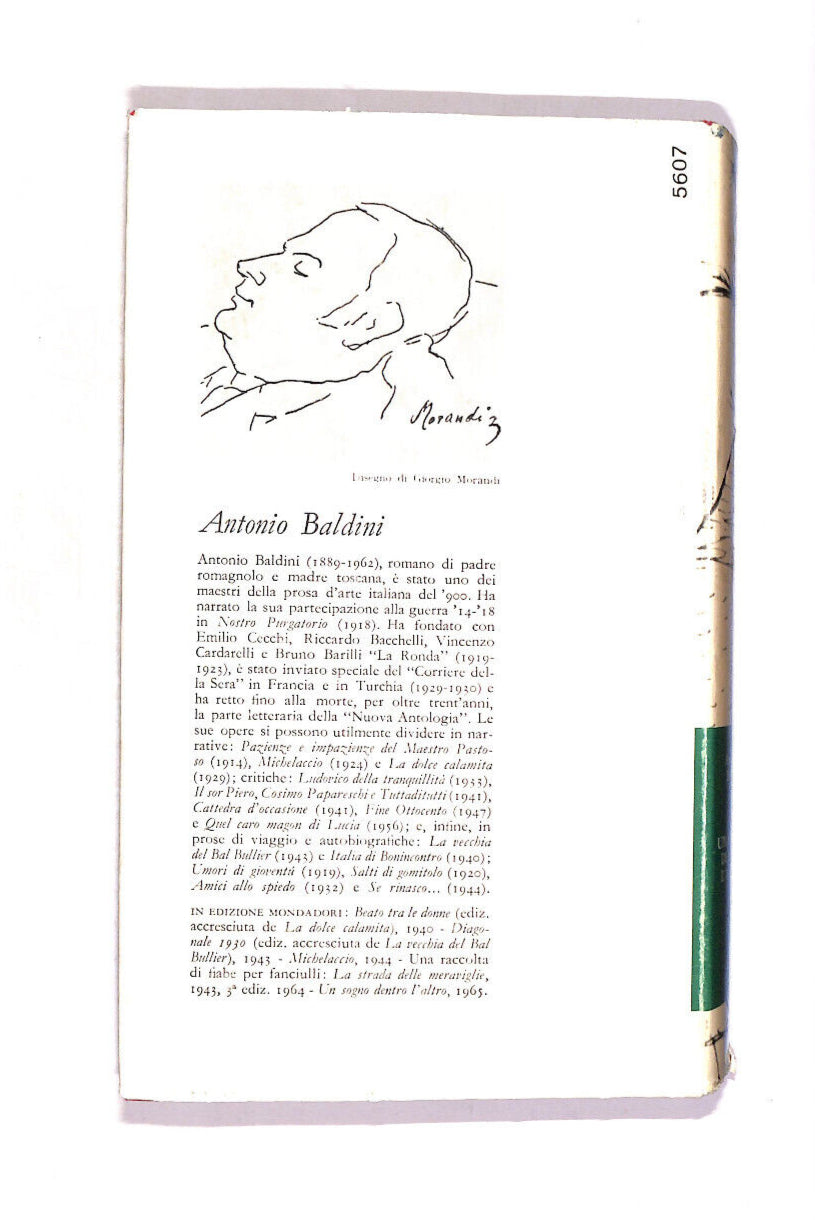 5607
Morandi
Disegno di Giorgio Morandi
Antonio Baldini
Antonio Baldini (1889-1962), romano di padre
romagnolo e madre toscana, è stato uno dei
maestri della prosa d'arte italiana del '900. Ha
narrato la sua partecipazione alla guerra '14-'18
in Nostro Purgatorio (1918). Ha fondato con
Emilio Cecchi, Riccardo Bacchelli, Vincenzo
Cardarelli e Bruno Barilli “La Ronda” (1919-
1923), è stato inviato speciale del “Corriere del-
la Sera” in Francia e in Turchia (1929-1930) e
ha retto fino alla morte, per oltre trent'anni,
la parte letteraria della “Nuova Antologia”. Le
sue opere si possono utilmente dividere in nar-
rative: Pazienze e impazienze del Maestro Pasto-
so (1914), Michelaccio (1924) e La dolce calamita
(1929); critiche: Ludovico della tranquillità (1933),
Il sor Piero, Cosimo Papareschi e Tuttaditutti (1941),
Cattedra d'occasione (1941), Fine Ottocento (1947)
e Quel caro magon di Lucia (1956); e, infine, in
prose di viaggio e autobiografiche: La vecchia
del Bal Bullier (1943) e Italia di Bonincontro (1940);
Umori di gioventù (1919), Salti di gomitolo (1920),
Amici allo spiedo (1932) e Se rinasco... (1944).
IN EDIZIONE MONDADORI: Beato tra le donne (ediz.
accresciuta de La dolce calamita), 1940 - Diago-
nale 1930 (ediz. accresciuta de La vecchia del Bal
Bullier), 1943 - Michelaccio, 1944 - Una raccolta
di fiabe per fanciulli: La strada delle meraviglie,
1943, 3ª ediz. 1964 - Un sogno dentro l'altro, 1965.